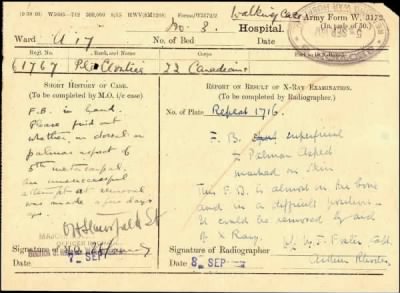 (9 30 06) W5085—712 300,000 8/15 HWV(RM1208) Forms/W3172/2
Walking Case
Army Form W. 3172.
(In pads of 50.)
No. 3. Hospital.
Ward U 17 No. of Bed Date
5 SEP
Regtl. No. Rank, and Name Corps
61767 Pte Cloutier 22 Canadians
SHORT HISTORY OF CASE.
(To be completed by M.O. i/c case)
F.B. in hand.
Please find out
whether on dorsal or
palmar aspect of
5th metacarpal.
An unsuccessful
attempt at removal
was made a few days
ago.
Signature of M.O.
Date 7 SEP
REPORT ON RESULT OF X-RAY EXAMINATION.
(To be completed by Radiographer.)
No. of Plate Repeat 1716.
F. B. superficial
Palmar Aspect
marked on skin
This F.B. is almost on the bone
and in a difficult position.
It could be removed by aid
of X Ray.
Signature of Radiographer
Date 8 SEP